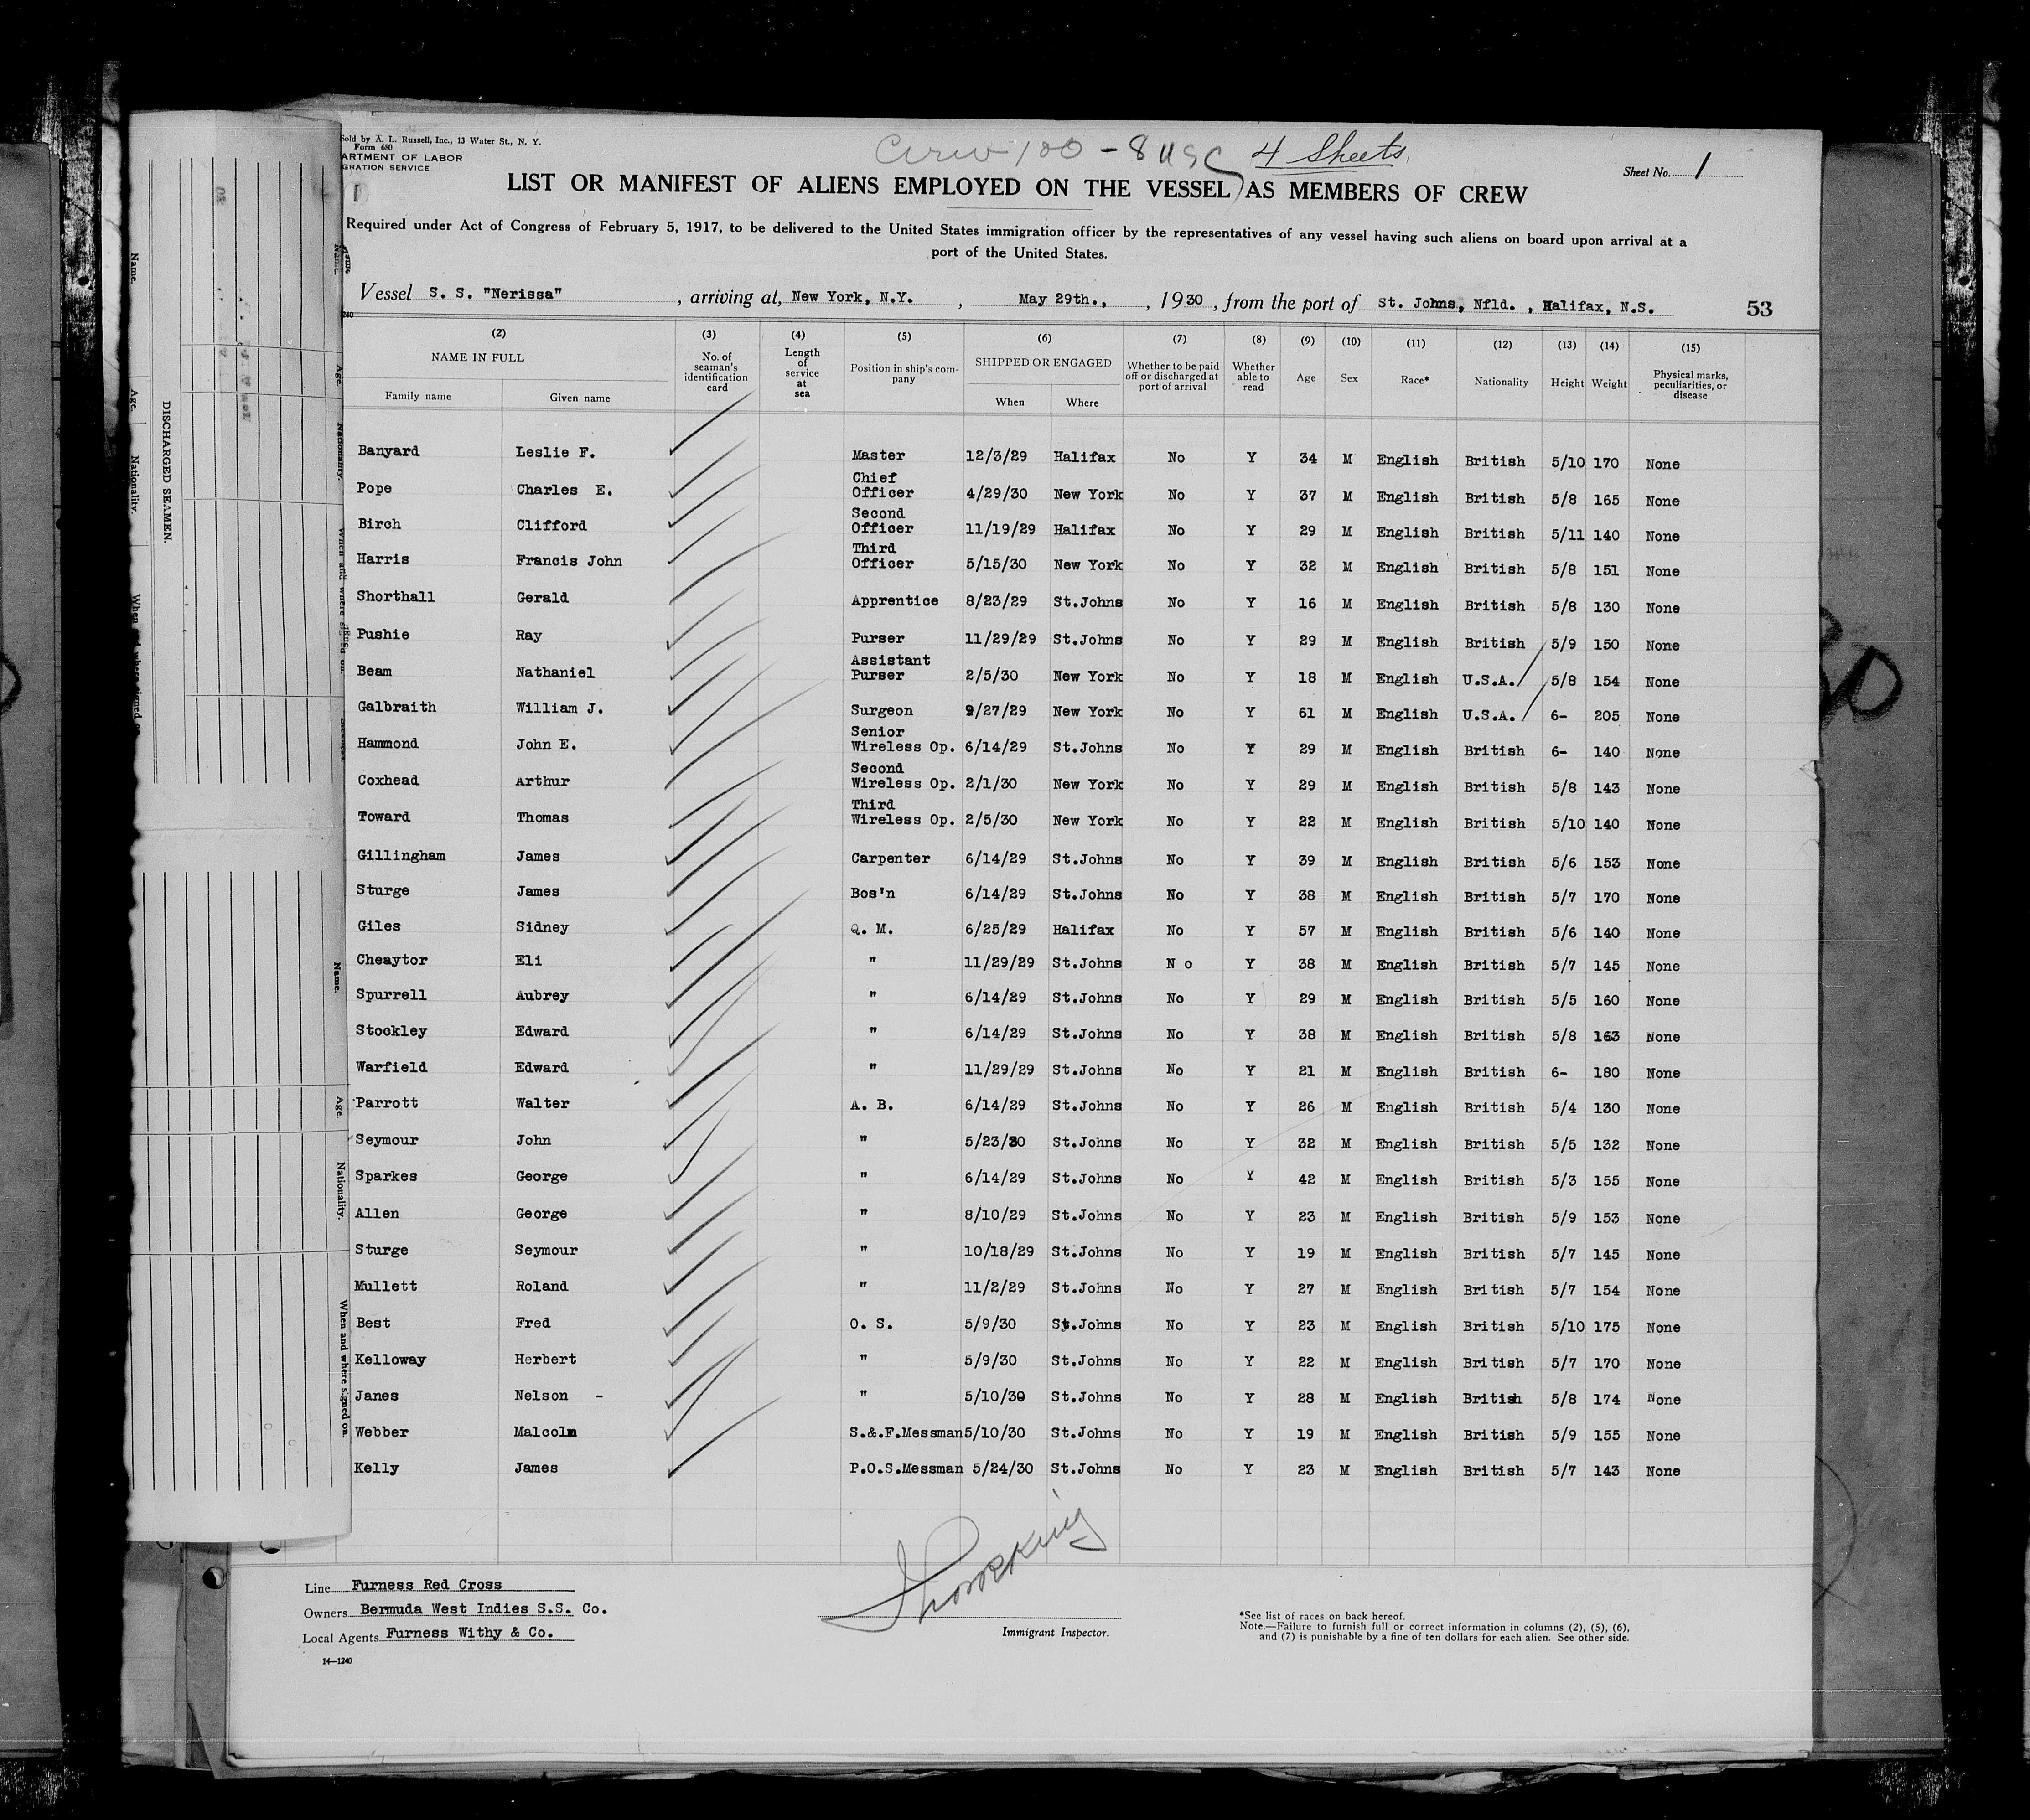 Sold by A. L. Russell, Inc., 13 Water St., N. Y.
Form 680
ARTMENT OF LABOR
GRATION SERVICE
Crew 100 - 8 USC 4 Sheets
Sheet No. 1
LIST OR MANIFEST OF ALIENS EMPLOYED ON THE VESSEL AS MEMBERS OF CREW
Required under Act of Congress of February 5, 1917, to be delivered to the United States immigration officer by the representatives of any vessel having such aliens on board upon arrival at a
port of the United States.
Vessel S. S. "Nerissa" , arriving at, New York, N.Y. , May 29th., , 1930 , from the port of St. Johns, Nfld. , Halifax, N.S. 53
(2) (3) (4) (5) (6) (7) (8) (9) (10) (11) (12) (13) (14) (15)
NAME IN FULL No. of seaman's identification card Length of service at sea Position in ship's company SHIPPED OR ENGAGED Whether to be paid off or discharged at port of arrival Whether able to read Age Sex Race* Nationality Height Weight Physical marks, peculiarities, or disease
Family name Given name When Where
Banyard Leslie F. Master 12/3/29 Halifax No Y 34 M English British 5/10 170 None
Pope Charles E. Chief Officer 4/29/30 New York No Y 37 M English British 5/8 165 None
Birch Clifford Second Officer 11/19/29 Halifax No Y 29 M English British 5/11 140 None
Harris Francis John Third Officer 5/15/30 New York No Y 32 M English British 5/8 151 None
Shorthall Gerald Apprentice 8/23/29 St.Johns No Y 16 M English British 5/8 130 None
Pushie Ray Purser 11/29/29 St.Johns No Y 29 M English British 5/9 150 None
Beam Nathaniel Assistant Purser 2/5/30 New York No Y 18 M English U.S.A. 5/8 154 None
Galbraith William J. Surgeon 9/27/29 New York No Y 61 M English U.S.A. 6- 205 None
Hammond John E. Senior Wireless Op. 6/14/29 St.Johns No Y 29 M English British 6- 140 None
Coxhead Arthur Second Wireless Op. 2/1/30 New York No Y 29 M English British 5/8 143 None
Toward Thomas Third Wireless Op. 2/5/30 New York No Y 22 M English British 5/10 140 None
Gillingham James Carpenter 6/14/29 St.Johns No Y 39 M English British 5/6 153 None
Sturge James Bos'n 6/14/29 St.Johns No Y 38 M English British 5/7 170 None
Giles Sidney Q. M. 6/25/29 Halifax No Y 57 M English British 5/6 140 None
Cheaytor Eli " 11/29/29 St.Johns N o Y 38 M English British 5/7 145 None
Spurrell Aubrey " 6/14/29 St.Johns No Y 29 M English British 5/5 160 None
Stockley Edward " 6/14/29 St.Johns No Y 38 M English British 5/8 163 None
Warfield Edward " 11/29/29 St.Johns No Y 21 M English British 6- 180 None
Parrott Walter A. B. 6/14/29 St.Johns No Y 26 M English British 5/4 130 None
Seymour John " 5/23/30 St.Johns No Y 32 M English British 5/5 132 None
Sparkes George " 6/14/29 St.Johns No Y 42 M English British 5/3 155 None
Allen George " 8/10/29 St.Johns No Y 23 M English British 5/9 153 None
Sturge Seymour " 10/18/29 St.Johns No Y 19 M English British 5/7 145 None
Mullett Roland " 11/2/29 St.Johns No Y 27 M English British 5/7 154 None
Best Fred O. S. 5/9/30 St.Johns No Y 23 M English British 5/10 175 None
Kelloway Herbert " 5/9/30 St.Johns No Y 22 M English British 5/7 170 None
Janes Nelson - " 5/10/30 St.Johns No Y 28 M English British 5/8 174 None
Webber Malcolm S.&.F.Messman 5/10/30 St.Johns No Y 19 M English British 5/9 155 None
Kelly James P.O.S.Messman 5/24/30 St.Johns No Y 23 M English British 5/7 143 None
Line Furness Red Cross
Owners Bermuda West Indies S.S. Co.
Local Agents Furness Withy & Co.
14—1240
Immigrant Inspector.
*See list of races on back hereof.
Note.—Failure to furnish full or correct information in columns (2), (5), (6),
and (7) is punishable by a fine of ten dollars for each alien. See other side.
DISCHARGED SEAMEN.
Name.
Age.
Nationality.
When and where signed on.
Name.
Age.
Nationality.
When and where signed on.